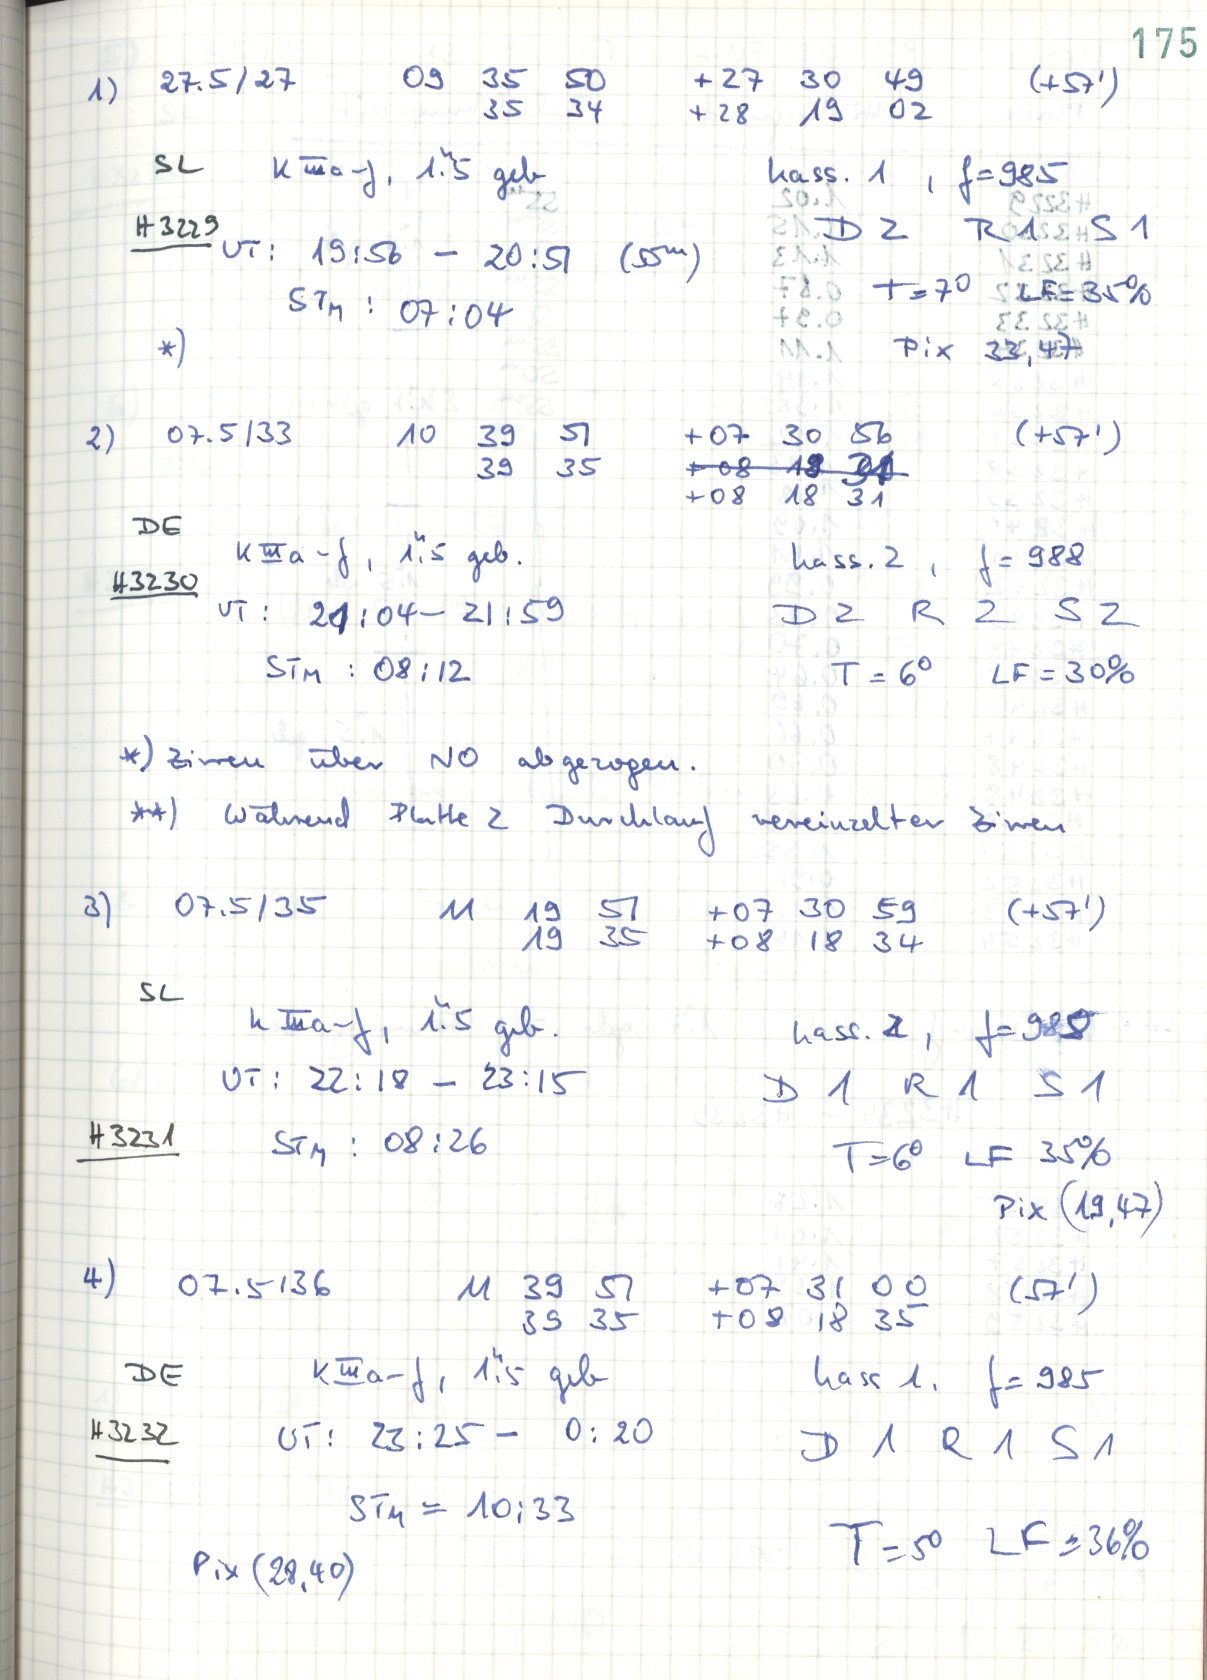 175
1) 27.5/27 09 35 50 +27 30 49 (+57')
35 34 +28 19 02
SL K IIIa-f, 1".5 geb Kass. 1, f=985
H3229 D2 R1 S1
UT: 19:56 – 20:51 (55m)
STM: 07:04 T=7° LF=35%
*) Pix 33,47
2) 07.5/33 10 39 51 +07 30 56 (+57')
39 35 +08 18 31
+08 18 31
DE K IIIa-f, 1".5 geb. Kass. 2, f=988
H3230 UT: 21:04 – 21:59 D2 R2 S2
STM: 08:12 T=6° LF=30%
*) Zirren über NO abgezogen.
**) Während Platte 2 Durchlauf vereinzelter Zirren
3) 07.5/35 11 19 51 +07 30 59 (+57')
19 35 +08 18 34
SL
K IIIa-f, 1".5 geb. Kass. 2, f=988
UT: 22:18 – 23:15 D1 R1 S1
H3231 STM: 08:26 T=6° LF 35%
Pix (19,47)
4) 07.5/36 11 39 51 +07 31 00 (57')
39 35 +08 18 35
DE K IIIa-f, 1".5 geb Kass 1. f=985
H3232 UT: 23:25 – 0:20 D1 R1 S1
STM = 10:33
T=5° LF=36%
Pix (28,40)